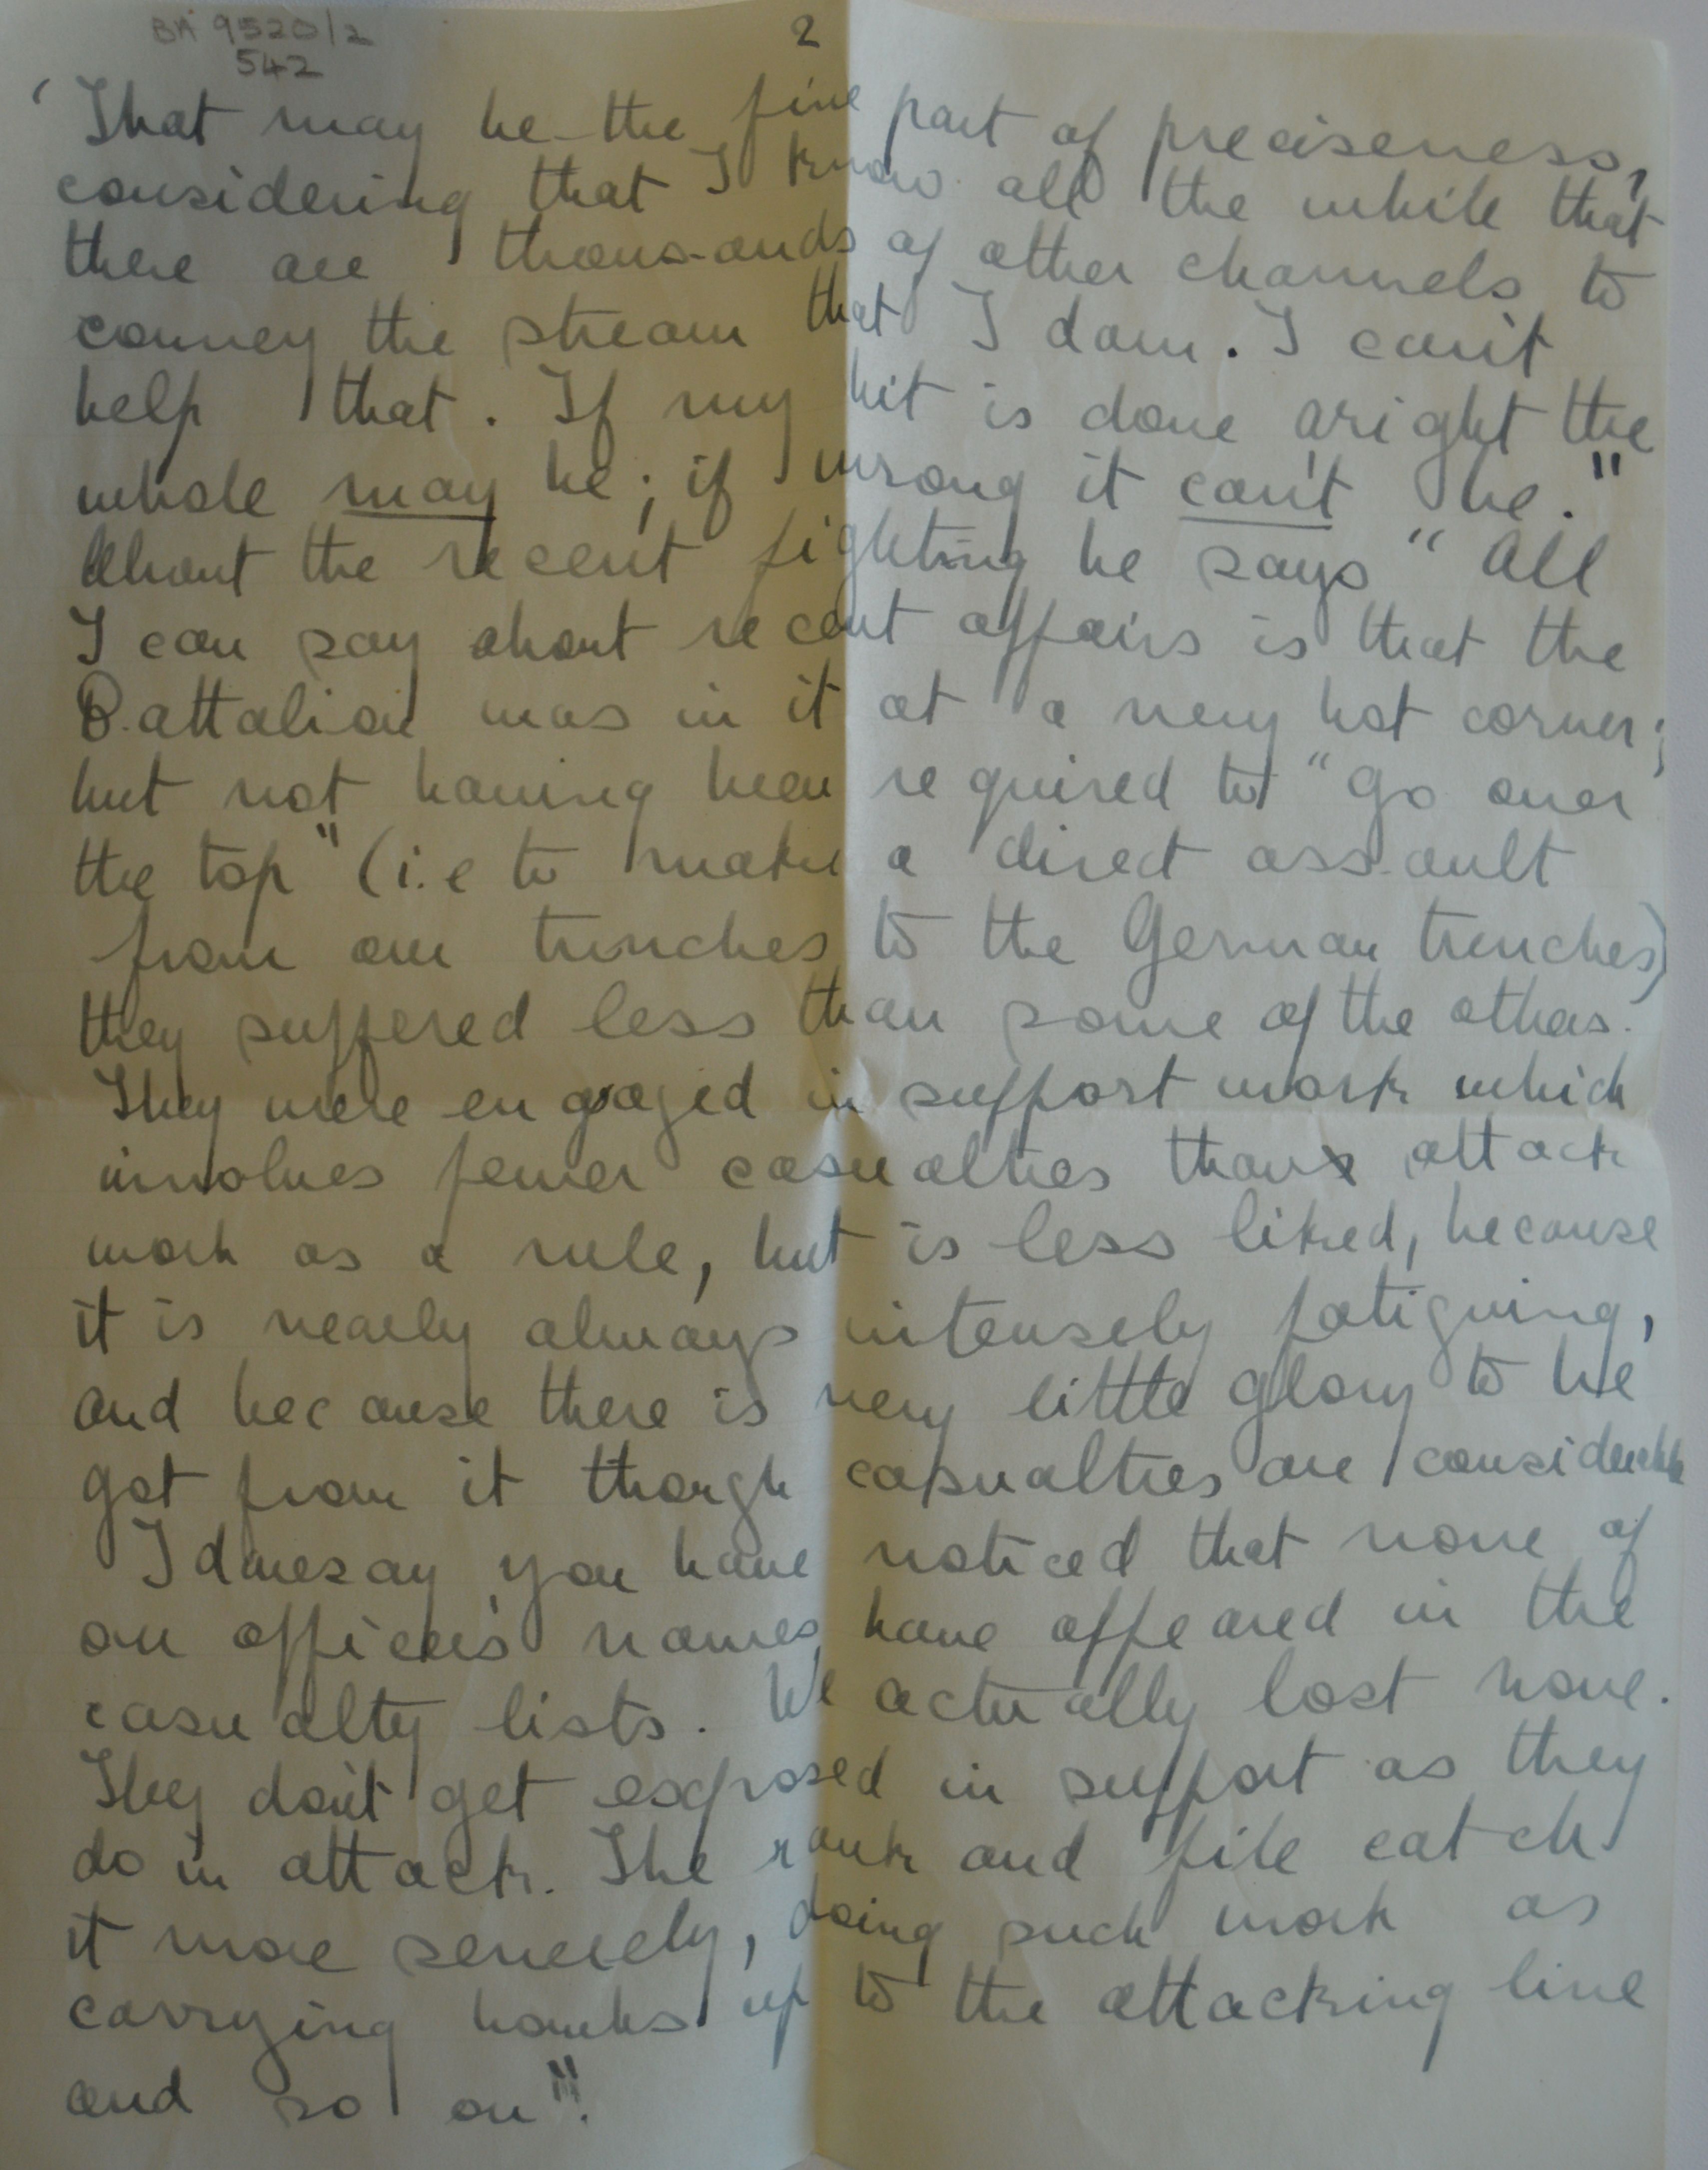 BA 9520/2
542
2
'That may be the fine part of preciseness,
considering that I know all the while that
there are thous-ands of other channels to
convey the stream that I dam. I can't
help that. If my bit is done aright the
whole may be; if wrong it can't be."
About the recent fighting he says "All
I can say about recent affairs is that the
Battalion was in it at a very hot corner;
but not having been required to "Go over
the top" (i.e to make a direct assault
from our trenches to the German trenches)
they suffered less than some of the others.
They were engaged in support work which
involves fewer casualties than attack
work as a rule, but is less liked, because
it is nearly always intensely fatiguing,
and because there is very little glory to be
got from it though casualties are considerable
I daresay you have noticed that none of
our officers' names have appeared in the
casualty lists. We actually lost none.
They don't get exposed in support as they
do in attack. The rank and file catch
it more severely, doing such work as
carrying bombs up to the attacking line
and so on".